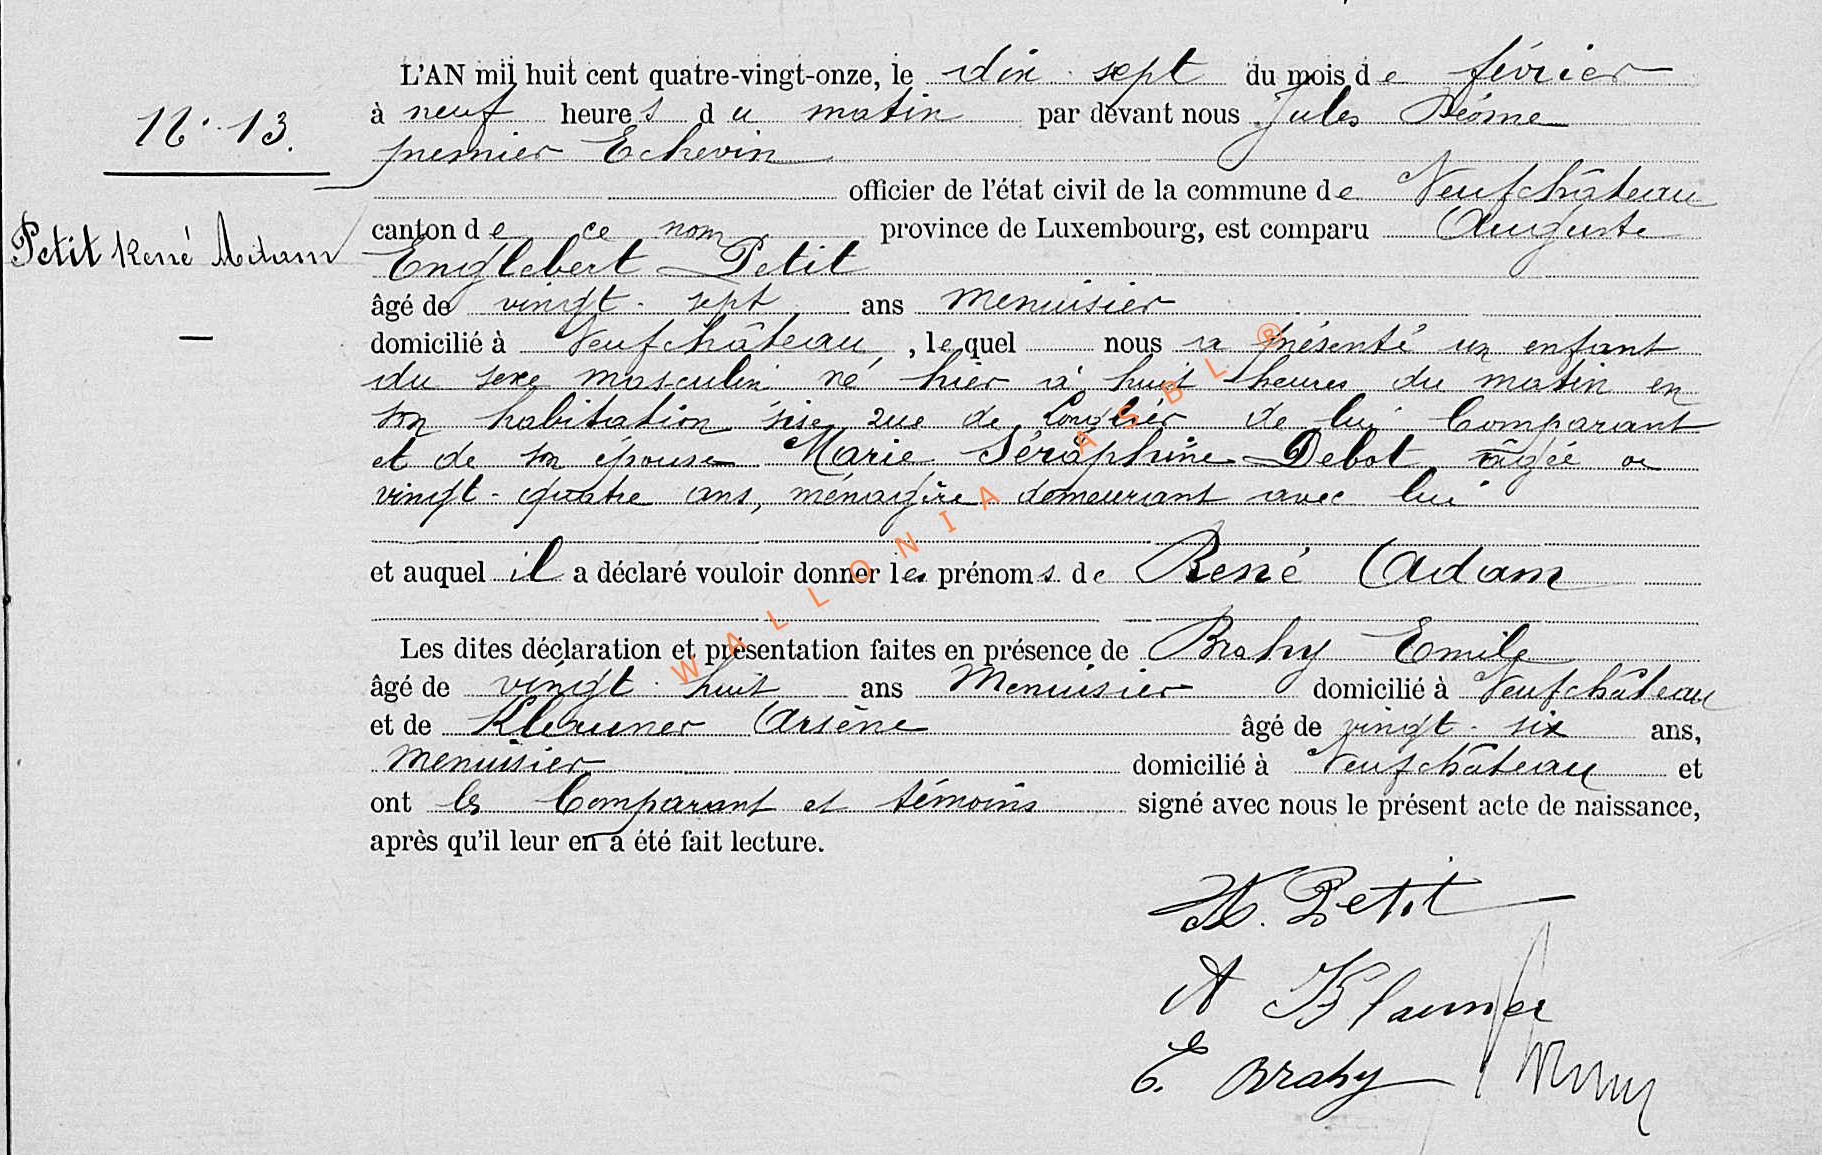 L'AN mil huit cent quatre-vingt-onze, le dix-sept du mois de février
N° 13. à neuf heures du matin par devant nous Jules Déome
premier Echevin
officier de l'état civil de la commune de Neufchâteau
Petit René Adam canton de ce nom province de Luxembourg, est comparu Auguste
Englebert Petit
âgé de vingt-sept ans menuisier
domicilié à Neufchâteau, lequel nous a présenté un enfant
du sexe masculin né hier à huit heures du matin en
son habitation sise rue de Longlier de lui Comparant
et de son épouse Marie Séraphine Debot âgée de
vingt-quatre ans, ménagère demeurant avec lui
et auquel il a déclaré vouloir donner les prénoms de René Adam
Les dites déclaration et présentation faites en présence de Brahy Emile
âgé de vingt-huit ans Menuisier domicilié à Neufchâteau
et de Klauner Arsène âgé de vingt-six ans,
menuisier domicilié à Neufchâteau et
ont les Comparant et témoins signé avec nous le présent acte de naissance,
après qu'il leur en a été fait lecture.
A. Petit
A Klauner
E. Brahy
WALLONIA ASBL ®